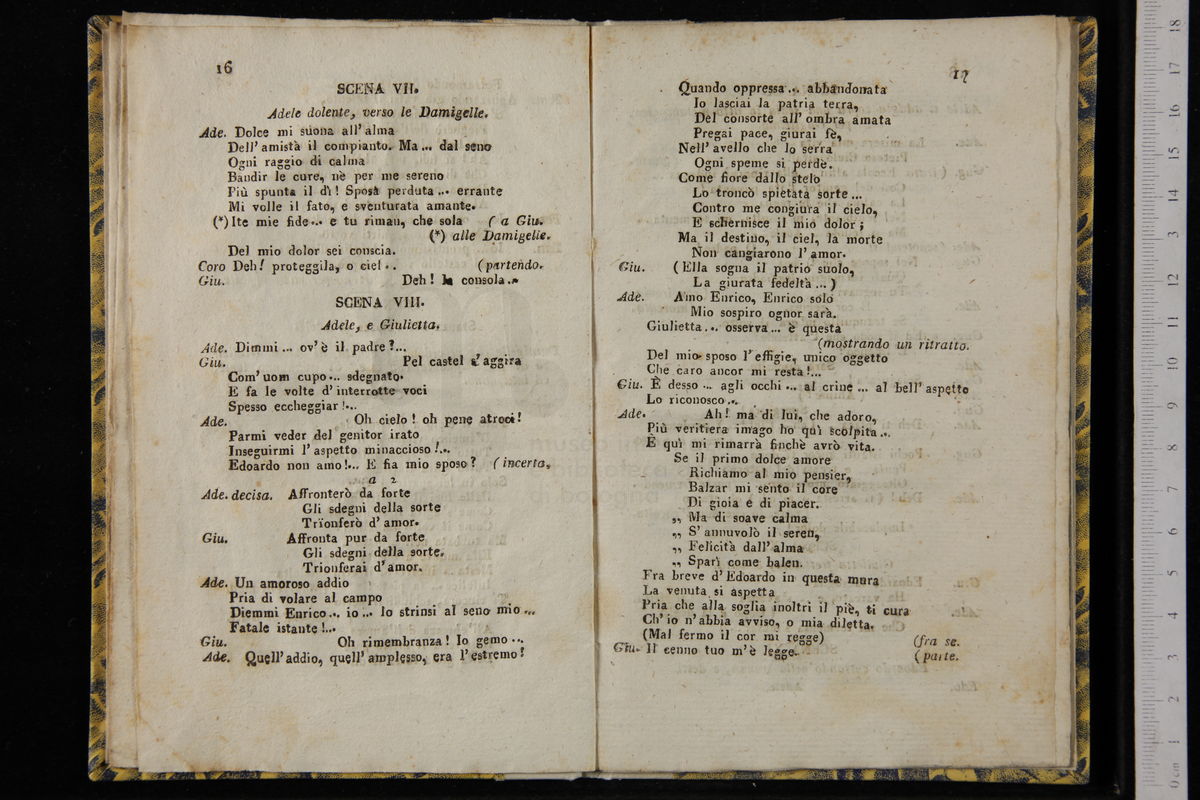 16
SCENA VII.
Adele dolente, verso le Damigelle.
Ade. Dolce mi suona all' alma
Dell' amistà il compianto. Ma... dal seno
Ogni raggio di calma
Bandir le cure, nè per me sereno
Più spunta il dì! Sposa perduta... errante
Mi volle il fato, e sventurata amante.
(*) Ite mie fide... e tu riman, che sola ( a Giu.
(*) alle Damigelle.
Del mio dolor sei conscia.
Coro Deh! proteggila, o ciel.. (partendo.
Giu. Deh! la consola..
SCENA VIII.
Adele, e Giulietta.
Ade. Dimmi... ov' è il padre?...
Giu. Pel castel s' aggira
Com' uom cupo... sdegnato.
E fa le volte d' interrotte voci
Spesso eccheggiar!...
Ade. Oh cielo! oh pene atroci!
Parmi veder del genitor irato
Inseguirmi l' aspetto minaccioso!...
Edoardo non amo!... E fia mio sposo? (incerta,
a 2
Ade. decisa. Affronterò da forte
Gli sdegni della sorte
Trionferò d' amor.
Giu. Affronta pur da forte
Gli sdegni della sorte.
Trionferai d' amor.
Ade. Un amoroso addio
Pria di volare al campo
Diemmi Enrico... io... lo strinsi al seno mio...
Fatale istante!...
Giu. Oh rimembranza! Io gemo...
Ade. Quell' addio, quell' amplesso, era l' estremo!
17
Quando oppressa... abbandonata
Io lasciai la patria terra,
Del consorte all' ombra amata
Pregai pace, giurai fè,
Nell' avello che lo serra
Ogni speme si perdè.
Come fiore dallo stelo
Lo troncò spietata sorte...
Contro me congiura il cielo,
E schernisce il mio dolor;
Ma il destino, il ciel, la morte
Non cangiarono l' amor.
Giu. (Ella sogna il patrio suolo,
La giurata fedeltà...)
Ade. Amo Enrico, Enrico solo
Mio sospiro ognor sarà.
Giulietta... osserva... è questa
(mostrando un ritratto.
Del mio sposo l' effigie, unico oggetto
Che caro ancor mi resta!...
Giu. È desso... agli occhi... al crine... al bell' aspetto
Lo riconosco...
Ade. Ah! ma di lui, che adoro,
Più veritiera imago ho quì scolpita...
E quì mi rimarrà finchè avrò vita.
Se il primo dolce amore
Richiamo al mio pensier,
Balzar mi sento il core
Di gioia e di piacer.
„ Ma di soave calma
„ S' annuvolò il seren,
„ Felicità dall' alma
„ Sparì come balen.
Fra breve d' Edoardo in questa mura
La venuta si aspetta
Pria che alla soglia inoltri il piè, ti cura
Ch' io n' abbia avviso, o mia diletta.
(Mal fermo il cor mi regge) (fra se.
Giu. Il cenno tuo m' è legge. (parte.